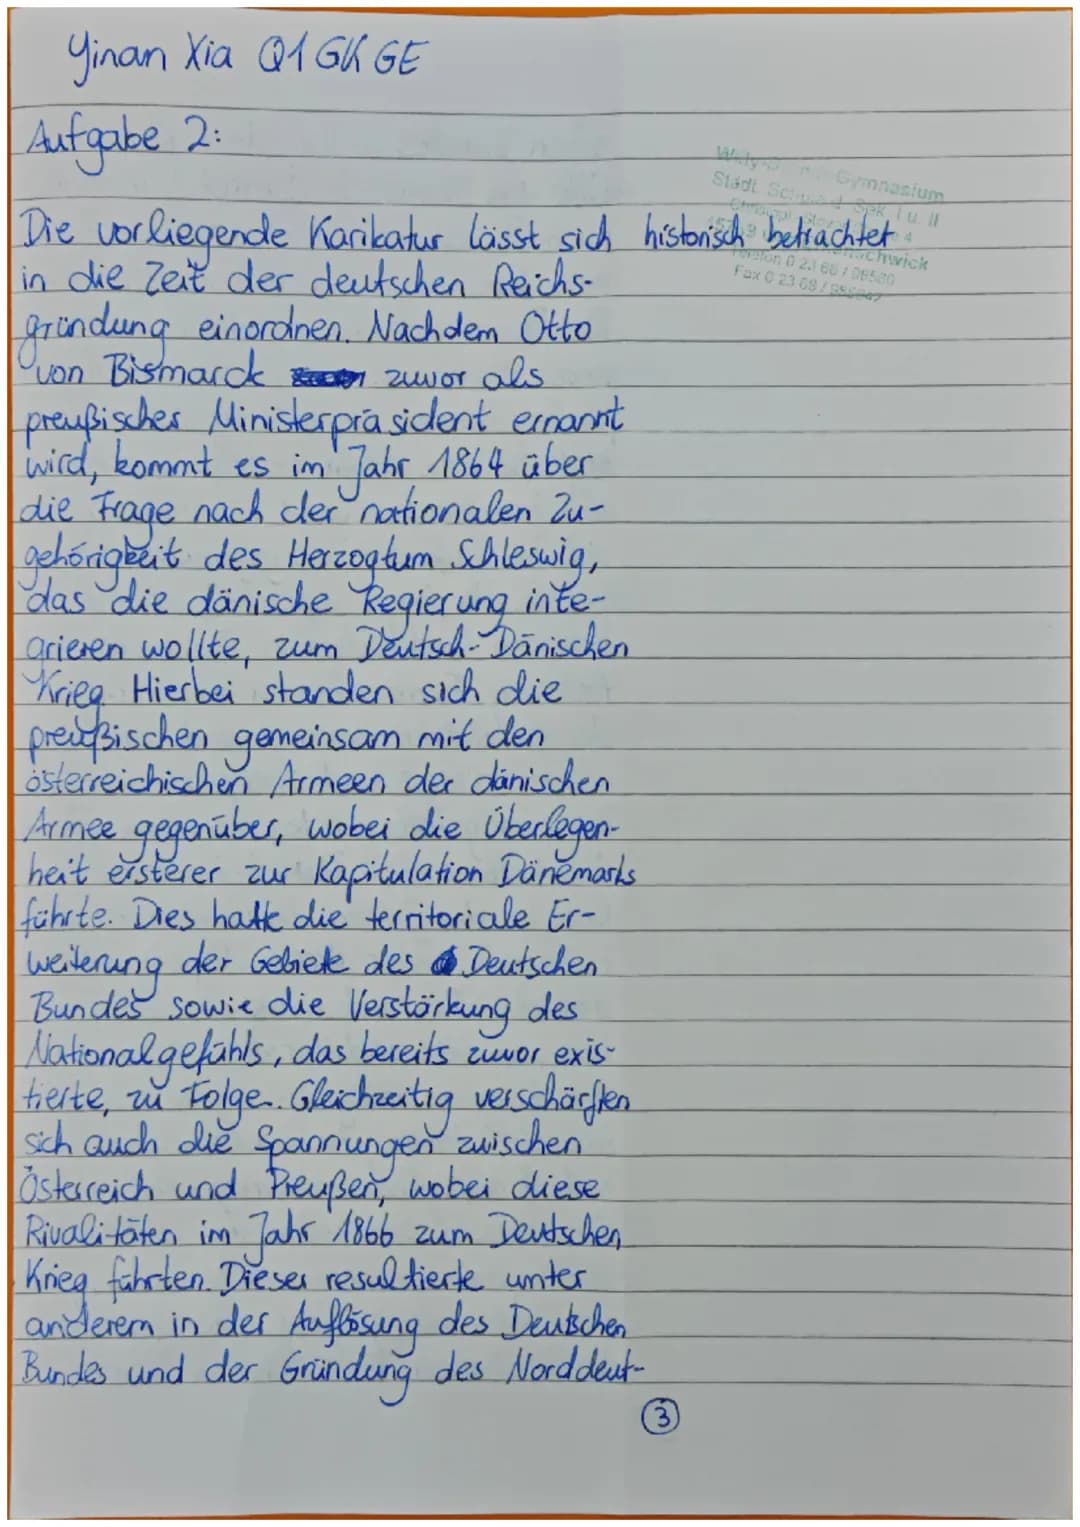 Yinan Xia Q1 GK GE
Aufgabe 2:
Gymnasium
Städt. Sek. I u. II
Die vorliegende Karikatur lässt sich historisch betrachtet
in die Zeit der deutschen Reichs-
Fax 0 23 68 /
gründung einordnen. Nachdem Otto
von Bismarck zuvor als
preußischer Ministerpräsident ernannt
wird, kommt es im Jahr 1864 über
die Frage nach der nationalen Zu-
gehörigkeit des Herzogtum Schleswig,
das die dänische Regierung inte-
grieren wollte, zum Deutsch-Dänischen
Krieg. Hierbei standen sich die
preußischen gemeinsam mit den
österreichischen Armeen der dänischen
Armee gegenüber, wobei die Überlegen-
heit ersterer zur Kapitulation Dänemarks
führte. Dies hatte die territoriale Er-
weiterung der Gebiete des Deutschen
Bundes sowie die Verstärkung des
Nationalgefühls, das bereits zuvor exis-
tierte, zu Folge. Gleichzeitig verschärften
sich auch die Spannungen zwischen
Österreich und Preußen, wobei diese
Rivalitäten im Jahr 1866 zum Deutschen
Krieg führten. Dieser resultierte unter
anderem in der Auflösung des Deutschen
Bundes und der Gründung des Norddeut-
3